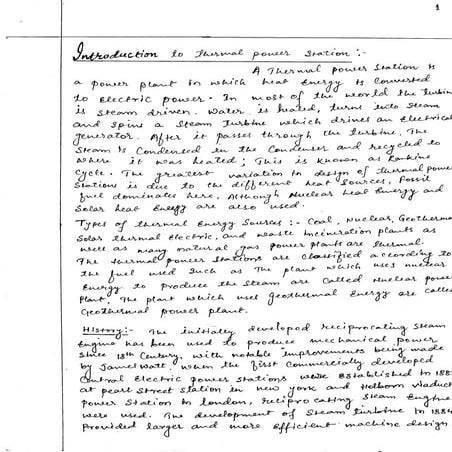 1
Introduction to Thermal power Station :-
A Thermal power Station is
a power plant in which heat Energy is Converted
to Electric power. In most of the world the turbine
is steam driven. Water is heated, turns into Steam
and Spins a Steam turbine which drives an Electrical
generator. After it passes through the turbine, The
Steam is Condensed in the Condenser and recycled to
Where it was heated; This is known as Rankine
Cycle. The greatest variation in design of thermal power
Stations is due to the different heat Sources, Fossil
fuel dominates here, Although Nuclear heat Energy and
Solar heat Energy are also used.
Types of thermal Energy Sources :- Coal, Nuclear, Geothermal
Solar thermal Electric, and Waste Incineration plants as
well as many natural gas power plants are thermal.
The thermal power Stations are classified according to
the fuel used Such as The plant which uses nuclear
Energy to produce the steam are Called Nuclear power
Plant. The plant which uses Geothermal Energy are called
Geothermal power plant.
History:- The initially developed reciprocating Steam
Engine has been used to produce mechanical power
Since 18th Century, with notable improvements being made
by James Watt. When the first Commercially developed
Central Electric power Stations were Established in 188
at pearl Street Station in New york and Holborn viaduct
power Station in London, reciprocating Steam Engine
were used. The development of Steam turbine in 1884
Provided larger and more Efficient machine design